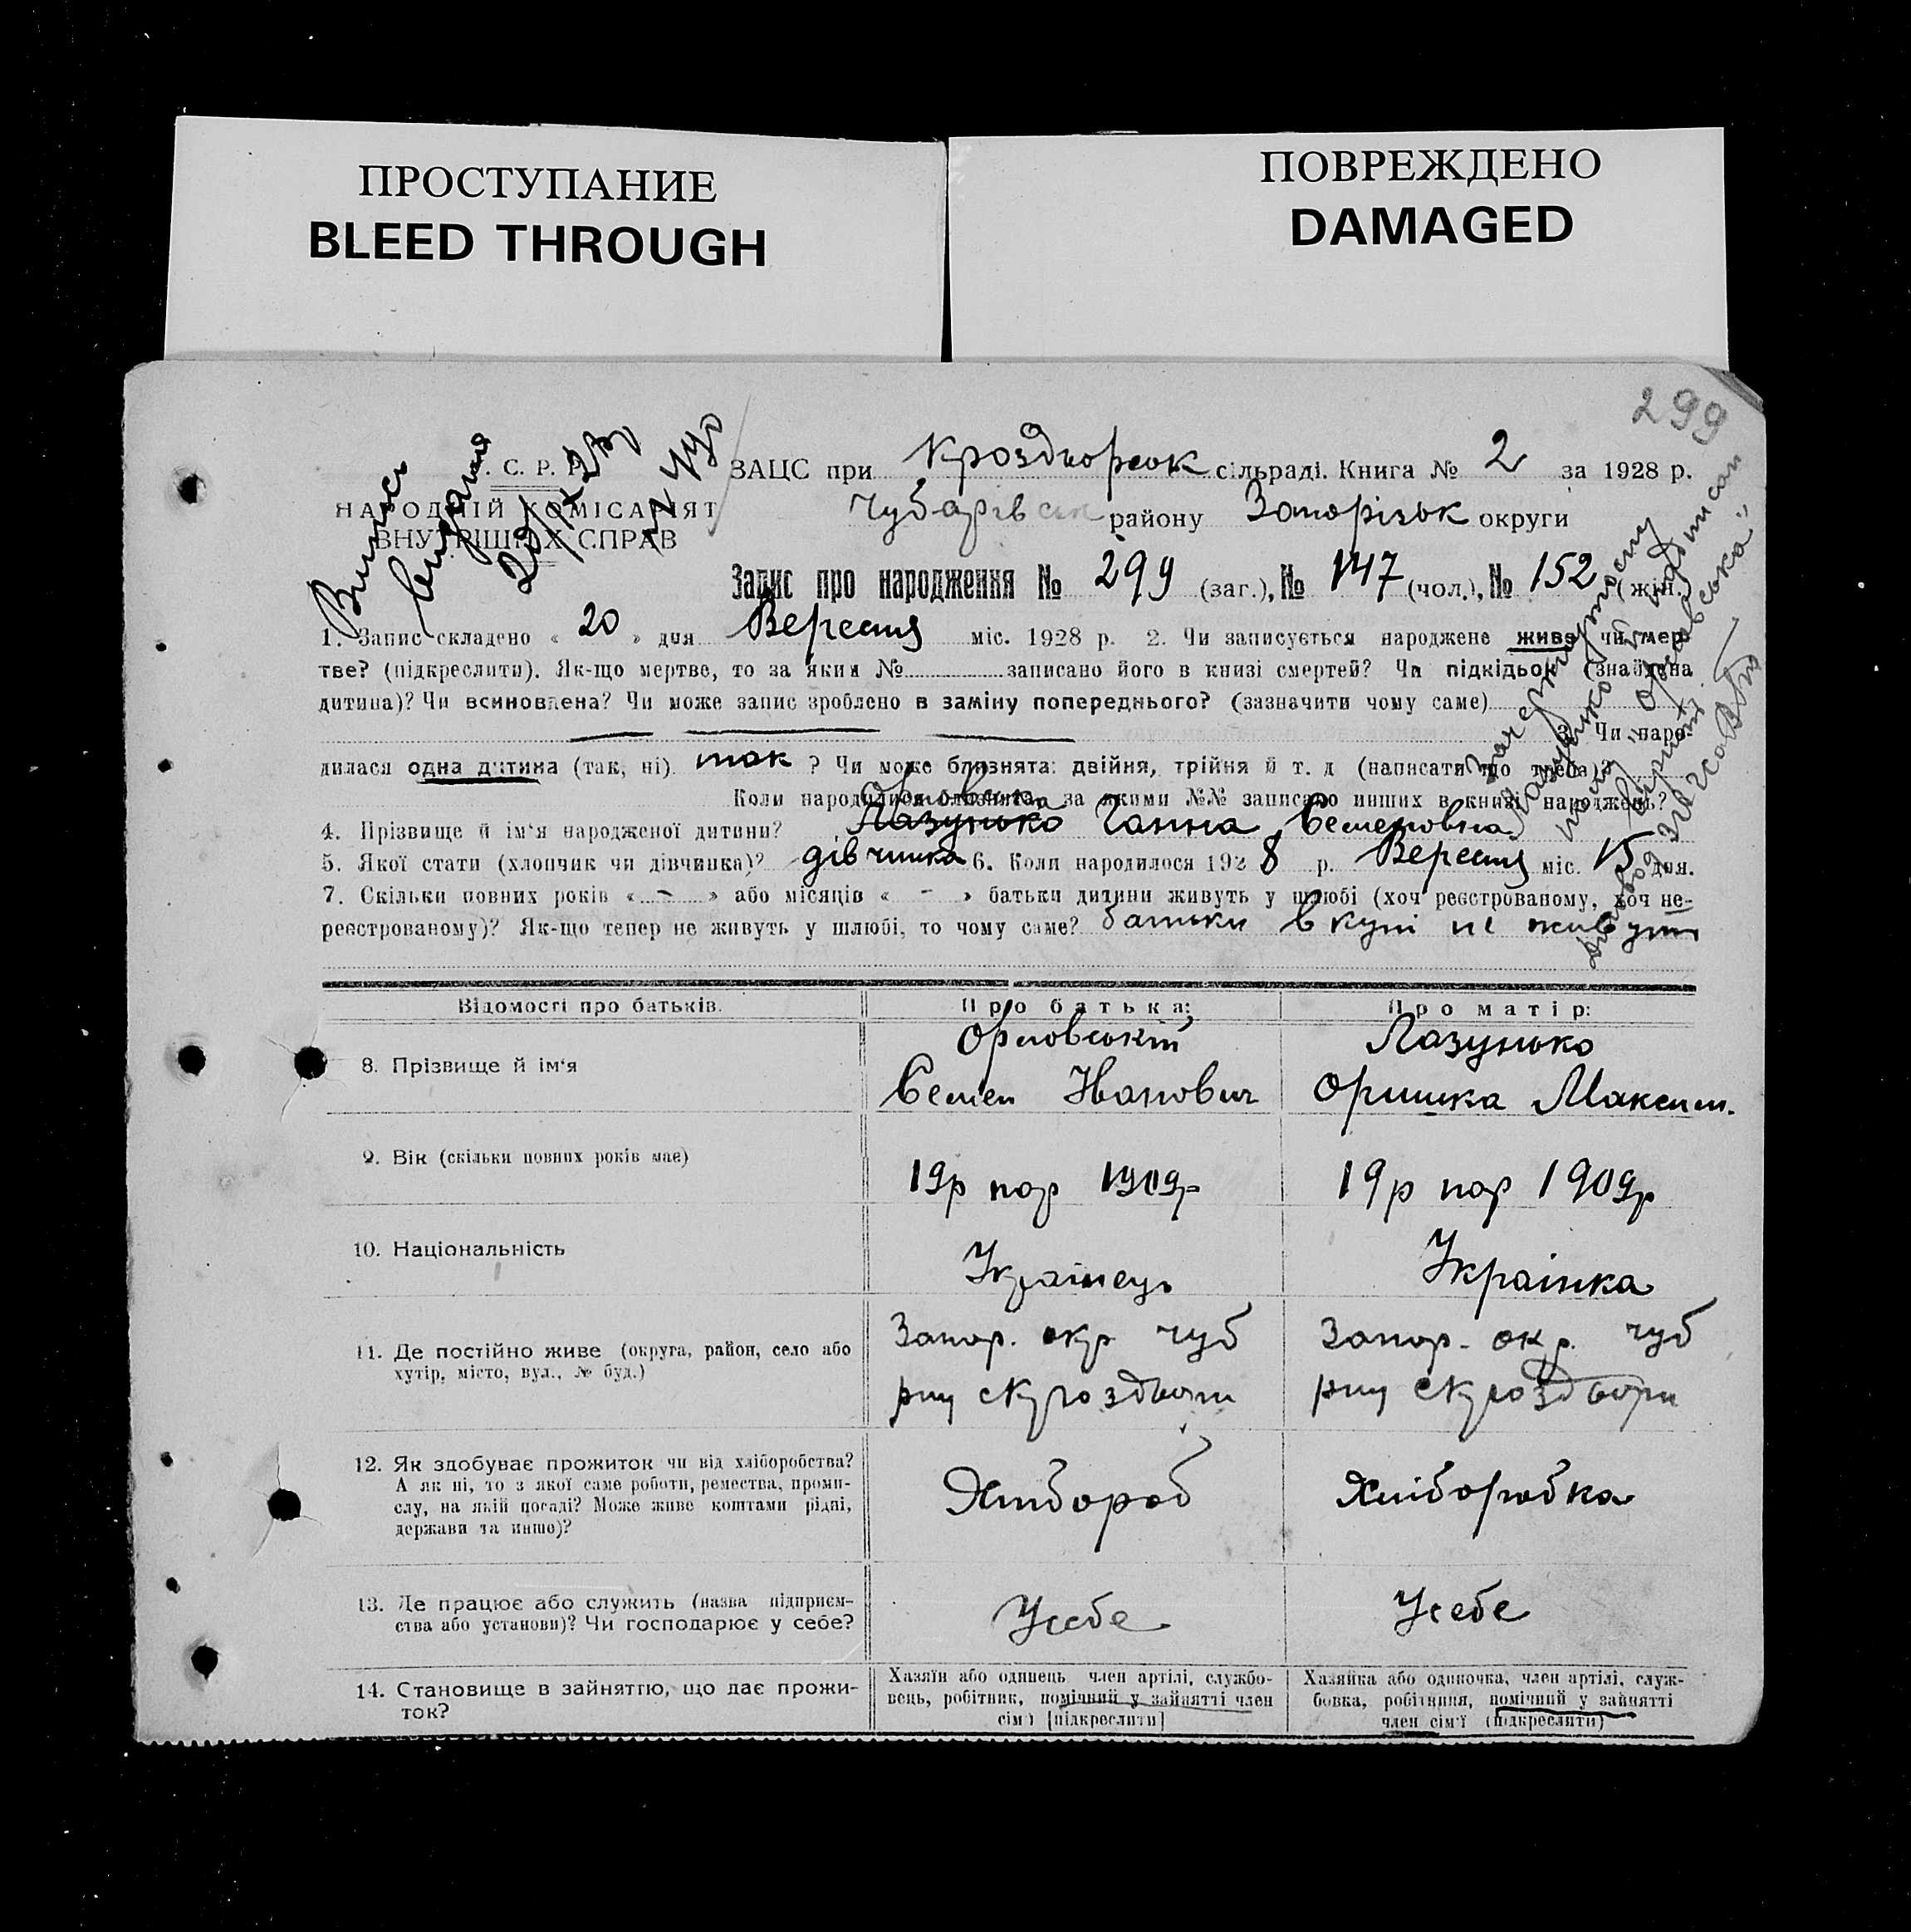 ПРОСТУПАНИЕ
BLEED THROUGH
ПОВРЕЖДЕНО
DAMAGED
299
С. Р. Р.
НАРОДНІЙ КОМІСАРІЯТ
ВНУТРІШНІХ СПРАВ
Випись
видана
20/IX 28р
ЗАЦС при Кроздворськ сільраді. Книга № 2 за 1928 р.
Чубарівськ району Запорізьк округи
Запис про народження № 299 (заг.), № 147 (чол.), № 152 (жін.)
1. Запис складено « 20 » дня Вересня міс. 1928 р. 2. Чи записується народжене живе чи мер-
тве? (підкреслити). Як-що мертве, то за яким № записано його в книзі смертей? Чи підкідьок (знайдена
дитина)? Чи всиновлена? Чи може запис зроблено в заміну попереднього? (зазначити чому саме)
3. Чи наро-
дилася одна дитина (так, ні) так ? Чи може близнята: двійня, трійня й т. д (написати що треба)?
Коли народилися близнята, за якими №№ записано инших в книзі народжень?
Орловська
4. Прізвище й ім'я народженої дитини? Лазунько Ганна Семеновна
5. Якої стати (хлопчик чи дівчинка)? дівчинка 6. Коли народилося 1928 р. Вересня міс. 15 дня.
7. Скільки повних років « – » або місяців « – » батьки дитини живуть у шлюбі (хоч реєстрованому, хоч не-
реєстрованому)? Як-що тепер не живуть у шлюбі, то чому саме? батьки вкупі не живуть
Закресленому
Лазунько підписан
"Орловська"
вірити
Відомості про батьків.
Про батька:
Про матір:
8. Прізвище й ім'я
Орловський
Семен Иванович
Лазунько
Оришка Максим.
9. Вік (скільки повних років має)
19р нар 1909р
19р нар 1909р
10. Національність
Українець
Українка
11. Де постійно живе (округа, район, село або
хутір, місто, вул., № буд.)
Запор. окр Чуб
рну с Кроздвори
Запор. окр. Чуб
рну с Кроздвори
12. Як здобуває прожиток чи від хліборобства?
А як ні, то з якої саме роботи, ремества, проми-
слу, на якій посаді? Може живе коштами рідні,
держави та инше)?
Хлібороб
Хліборобка
13. Де працює або служить (назва підприєм-
ства або установи)? Чи господарює у себе?
Усебе
Усебе
14. Становище в зайняттю, що дає прожи-
ток?
Хазяїн або одинець член артілі, службо-
вець, робітник, помічний у зайнятті член
сім'ї [підкреслити]
Хазяйка або одиночка, член артілі, служ-
бовка, робітниця, помічний у зайнятті
член сім'ї (підкреслити)